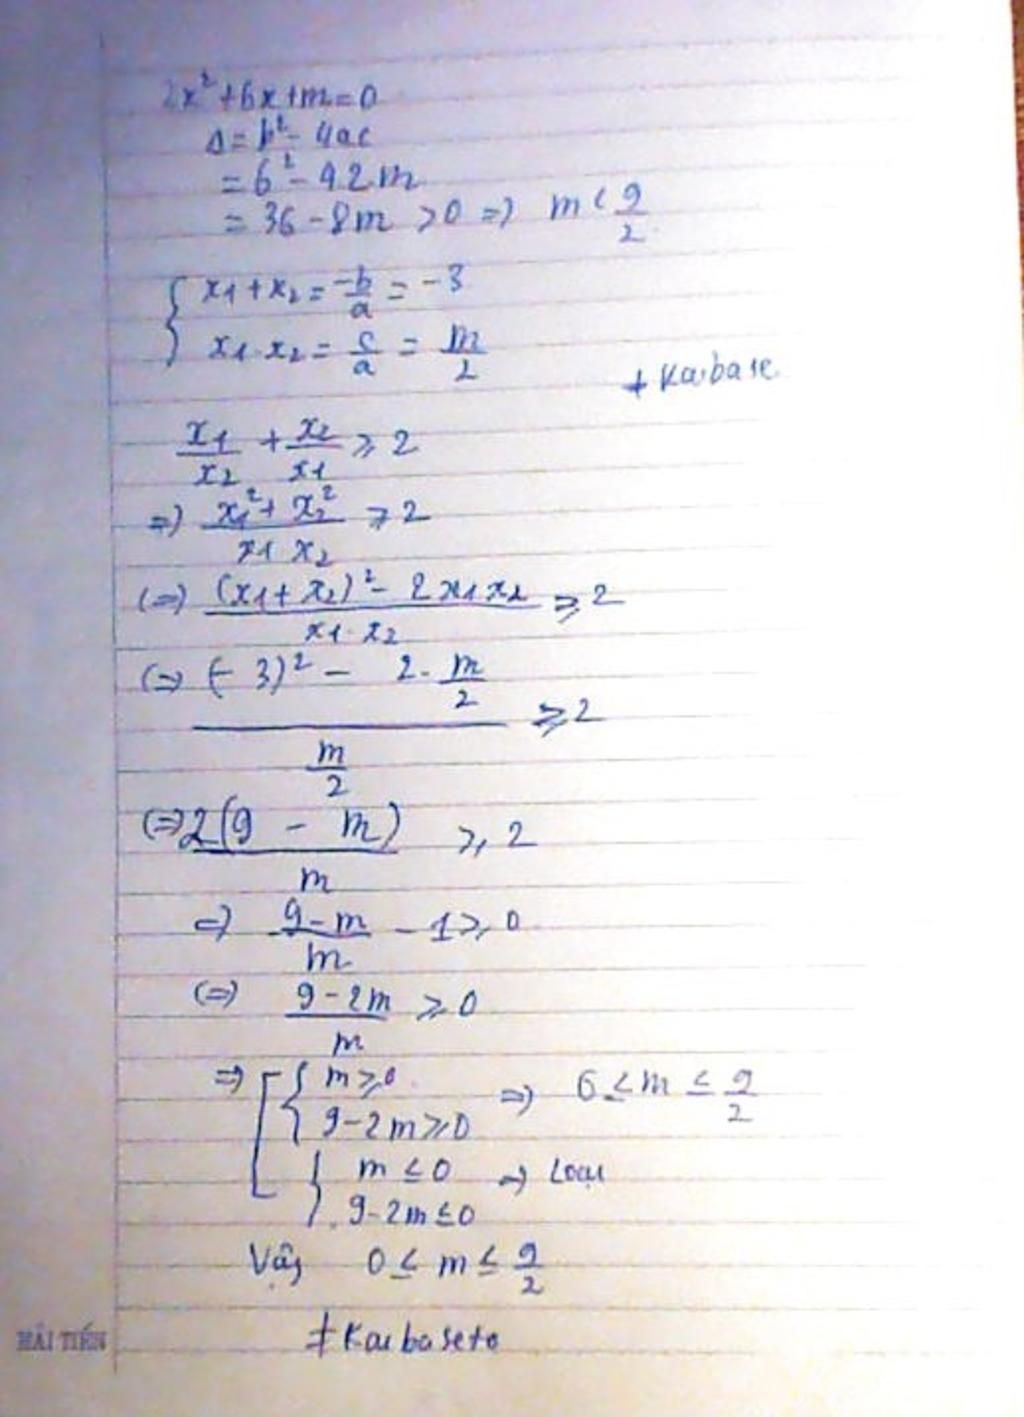 2x² + 6x + m = 0
Δ = b² - 4ac
= 6² - 4.2.m
= 36 - 8m > 0 => m < 9/2
{ x1 + x2 = -b/a = -3
x1 . x2 = c/a = m/2
+ Kaibase
x1/x2 + x2/x1 ≥ 2
=> (x1² + x2²)/(x1 x2) ≥ 2
(=> ((x1 + x2)² - 2x1x2)/(x1 . x2) ≥ 2
(=> ((-3)² - 2. m/2)/(m/2) ≥ 2
(=> 2(9 - m)/m ≥ 2
=> (9 - m)/m - 1 ≥ 0
(=) (9 - 2m)/m ≥ 0
=> [ { m ≥ 0
9 - 2m ≥ 0 => 6 ≤ m ≤ 9/2
{ m ≤ 0 => Loại
9 - 2m ≤ 0
Vậy 0 ≤ m ≤ 9/2
HẢI TIẾN
≠ Kaibaseto